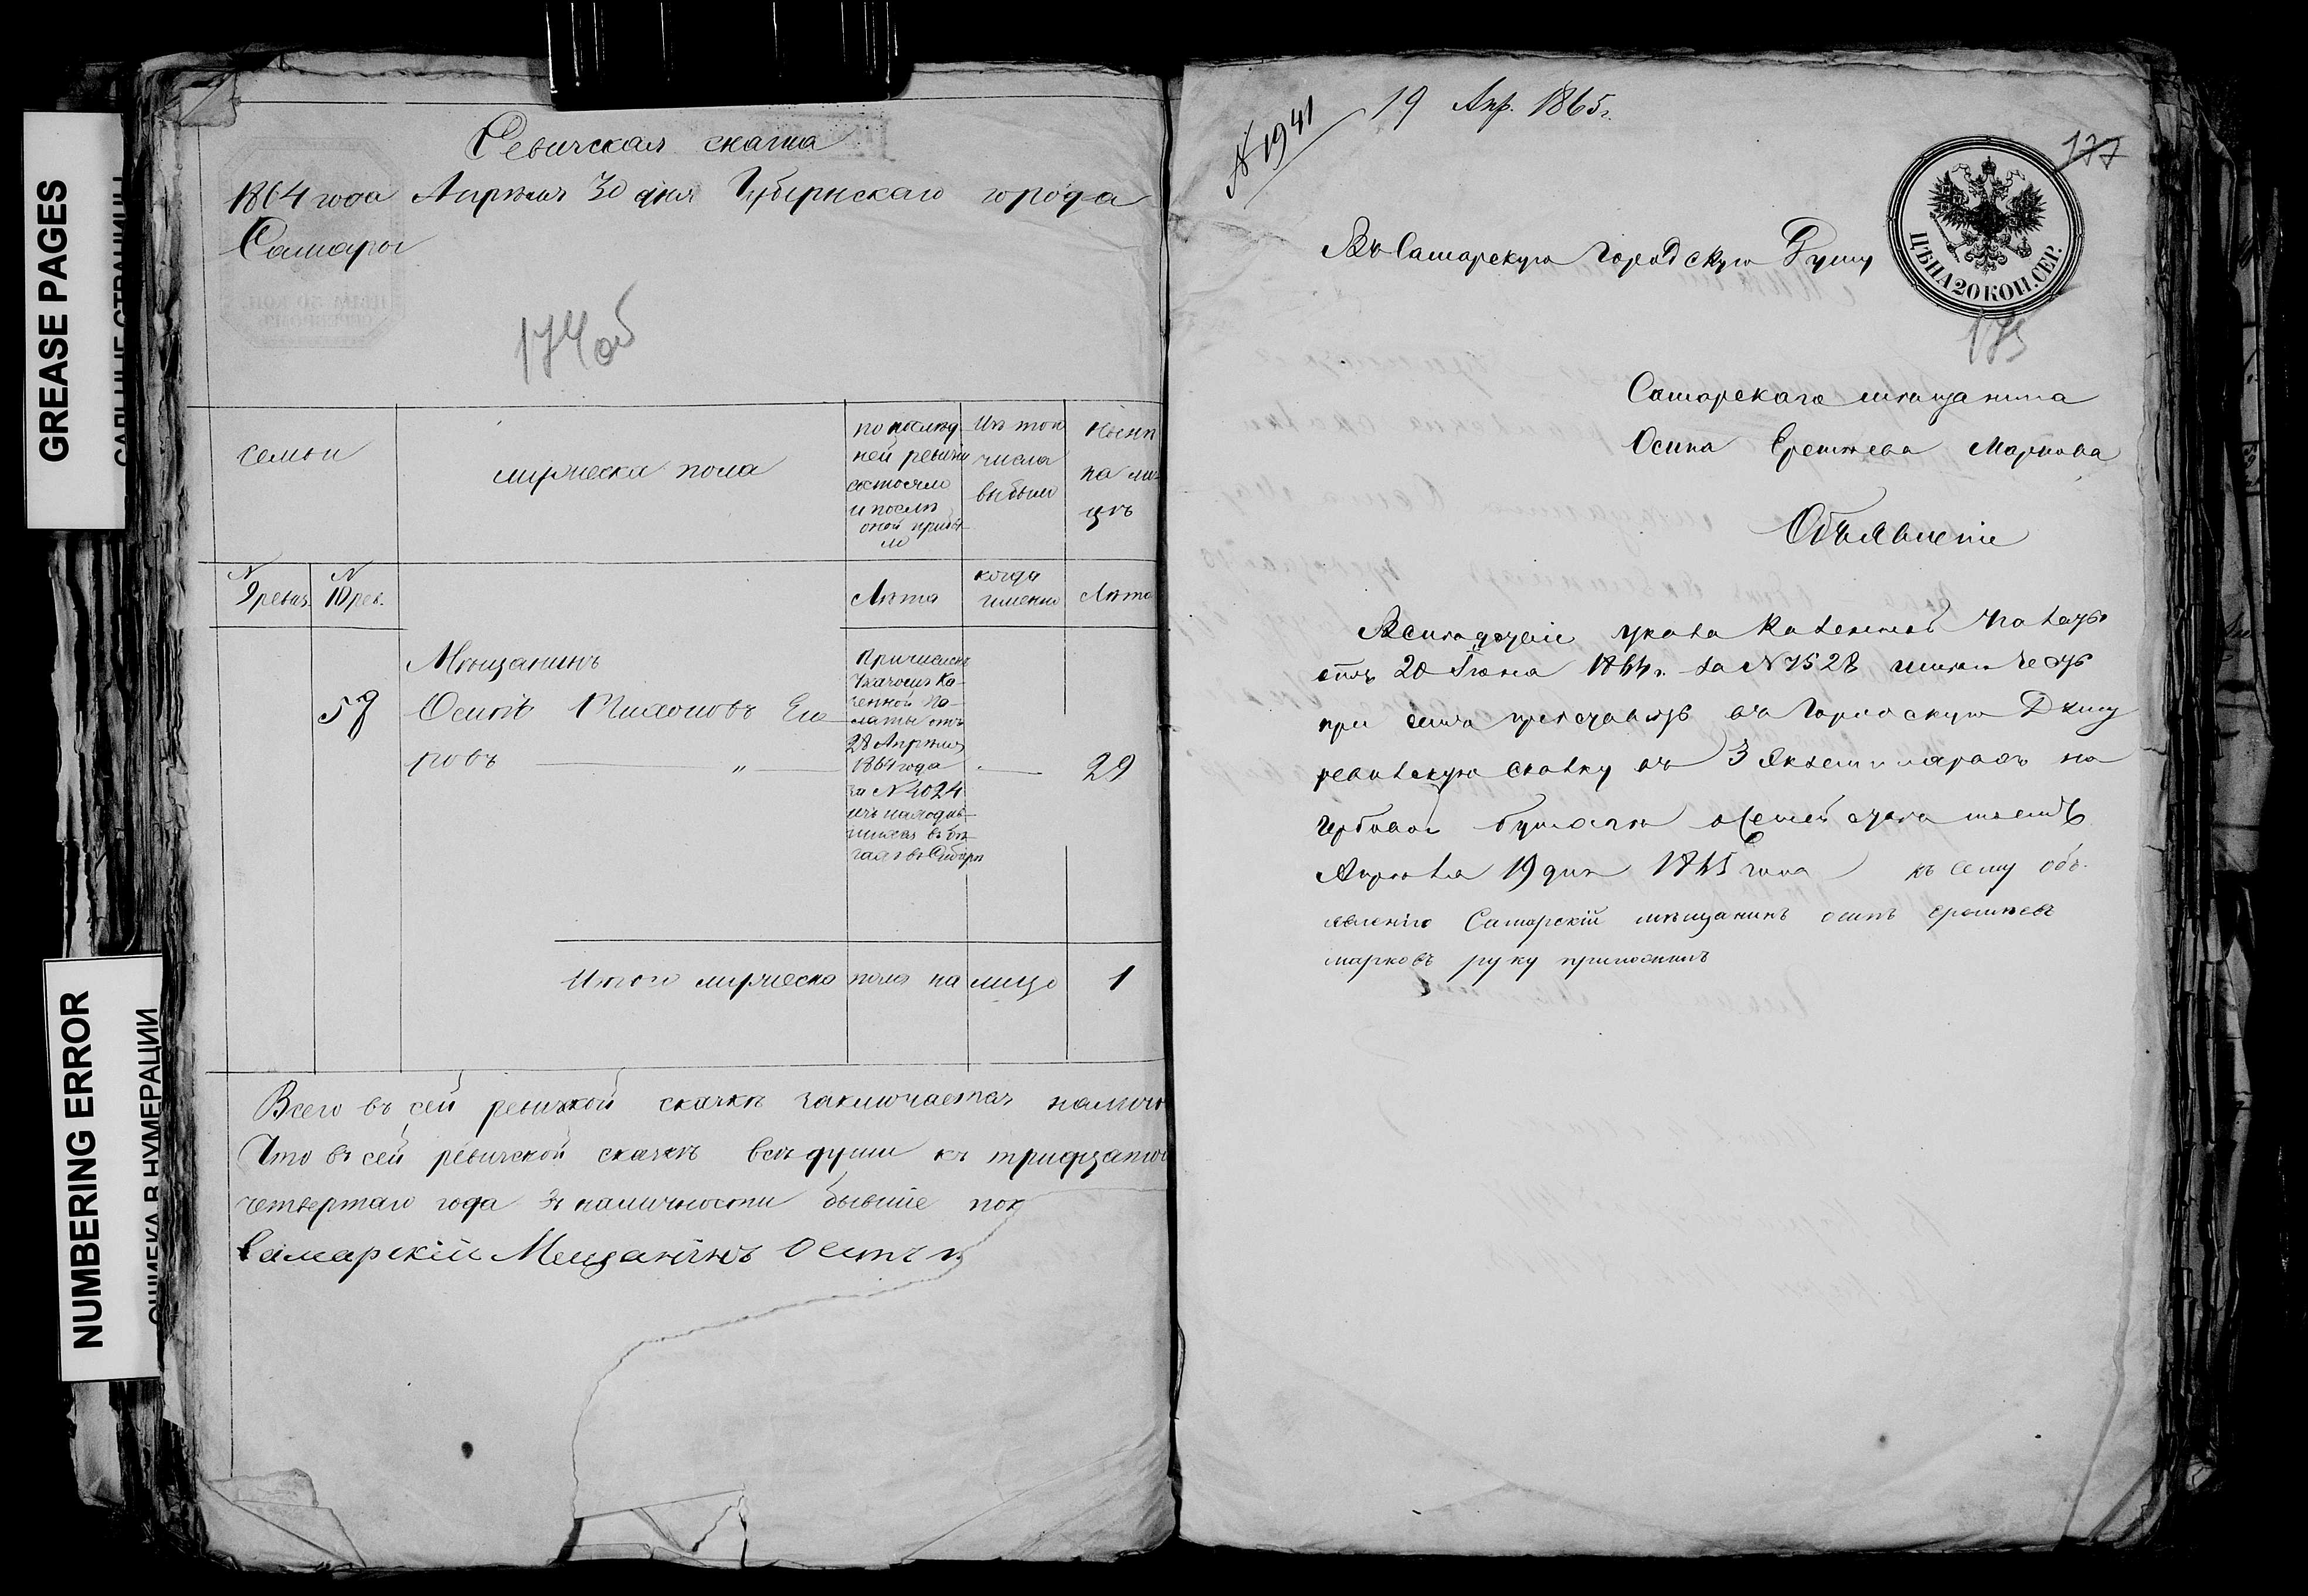 GREASE PAGES
NUMBERING ERROR
ОШИБКА В НУМЕРАЦИИ
Ревизская сказка
1864 года Апрѣля 30 дня Губернскаго города
Самары
174об
семьи
мужеска пола
по послѣд-
ней ревизіи
состояло
и послѣ
оной прибы-
ло
Изъ того
числа
выбыло
Нынѣ
на ли-
цѣ
N
9 ревиз.
N
10 рев.
Лѣта
когда
именно
Лѣта
58
Мѣщанинъ
Осипъ Тихоновъ
Причисленъ
Указомъ Ка-
зенной Па-
латы отъ
28 Апрѣля
1864 года
за N 4024
изъ находив-
шихся въ бѣ-
гахъ въ Сибири
29
Итого мужеска пола на лицо 1
Всего въ сей ревизской сказкѣ заключается
Что въ сей ревизской сказкѣ всѣ души къ
четвертаго года въ наличности бывшіе
Самарскій Мещанинъ Осипъ
N 1941
19 Апр. 1865г.
177
ЦѢНА 20 КОП. СЕР.
175
Въ Самарскую Городскую Думу
Самарскаго мѣщанина
Осипа Еремѣева Маркова
Объявленіе
указа Казенной Палаты
отъ 20 Іюня 1864г. за N 7528 имѣю честь
при семъ представить въ Городскую Думу
ревизскую сказку въ 3 экземплярахъ на
гербовой бумагѣ
Апрѣля 19 дня 1865 года къ сему объ-
явленію Самарскій мѣщанинъ осипъ еремѣевъ
марковъ руку приложилъ